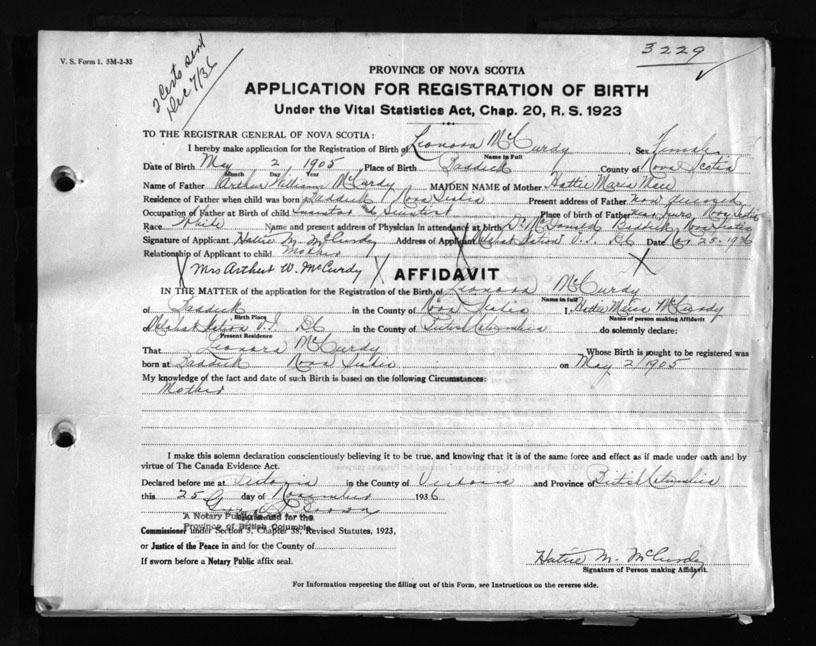 V. S. Form 1. 3M-2-35
3229
2 Certs sent
Dec 7/36
PROVINCE OF NOVA SCOTIA
APPLICATION FOR REGISTRATION OF BIRTH
Under the Vital Statistics Act, Chap. 20, R. S. 1923
TO THE REGISTRAR GENERAL OF NOVA SCOTIA:
I hereby make application for the Registration of Birth of Leonora McCurdy Sex Female
Name in Full
Date of Birth May 2 1905 Place of Birth Baddeck County of Nova Scotia
Month Day Year
Name of Father Arthur William McCurdy MAIDEN NAME of Mother Hattie Maria Mace
Residence of Father when child was born Baddeck Nova Scotia Present address of Father
Occupation of Father at Birth of child Inventor & Place of Birth of Father Nova Scotia
Race White Name and present address of Physician in attendance at birth Dr. McDonald Baddeck Nova Scotia
Signature of Applicant Hattie M. McCurdy Address of Applicant Station V.I. BC Date Nov 25. 1936
Relationship of Applicant to child Mother
X Mrs Arthur W. McCurdy X AFFIDAVIT X
IN THE MATTER of the application for the Registration of the Birth of Leonora McCurdy
Name in full
of Baddeck in the County of Nova Scotia I, Hattie Maria McCurdy
Birth Place Name of person making Affidavit
Station V.I. BC in the County of British Columbia do solemnly declare:
Present Residence
That Leonora McCurdy Whose Birth is sought to be registered was
born at Baddeck Nova Scotia on May 2/1905
My knowledge of the fact and date of such Birth is based on the following Circumstances:
Mother
I make this solemn declaration conscientiously believing it to be true, and knowing that it is of the same force and effect as if made under oath and by
virtue of The Canada Evidence Act.
Declared before me at Victoria in the County of Victoria and Province of British Columbia
this 25 day of November 1936
Brown
A Notary Public in and for the
Province of British Columbia
Commissioner under Section 3, Chapter 38, Revised Statutes, 1923,
or Justice of the Peace in and for the County of
If sworn before a Notary Public affix seal.
Hattie M. McCurdy
Signature of Person making Affidavit.
For Information respecting the filling out of this Form, see Instructions on the reverse side.